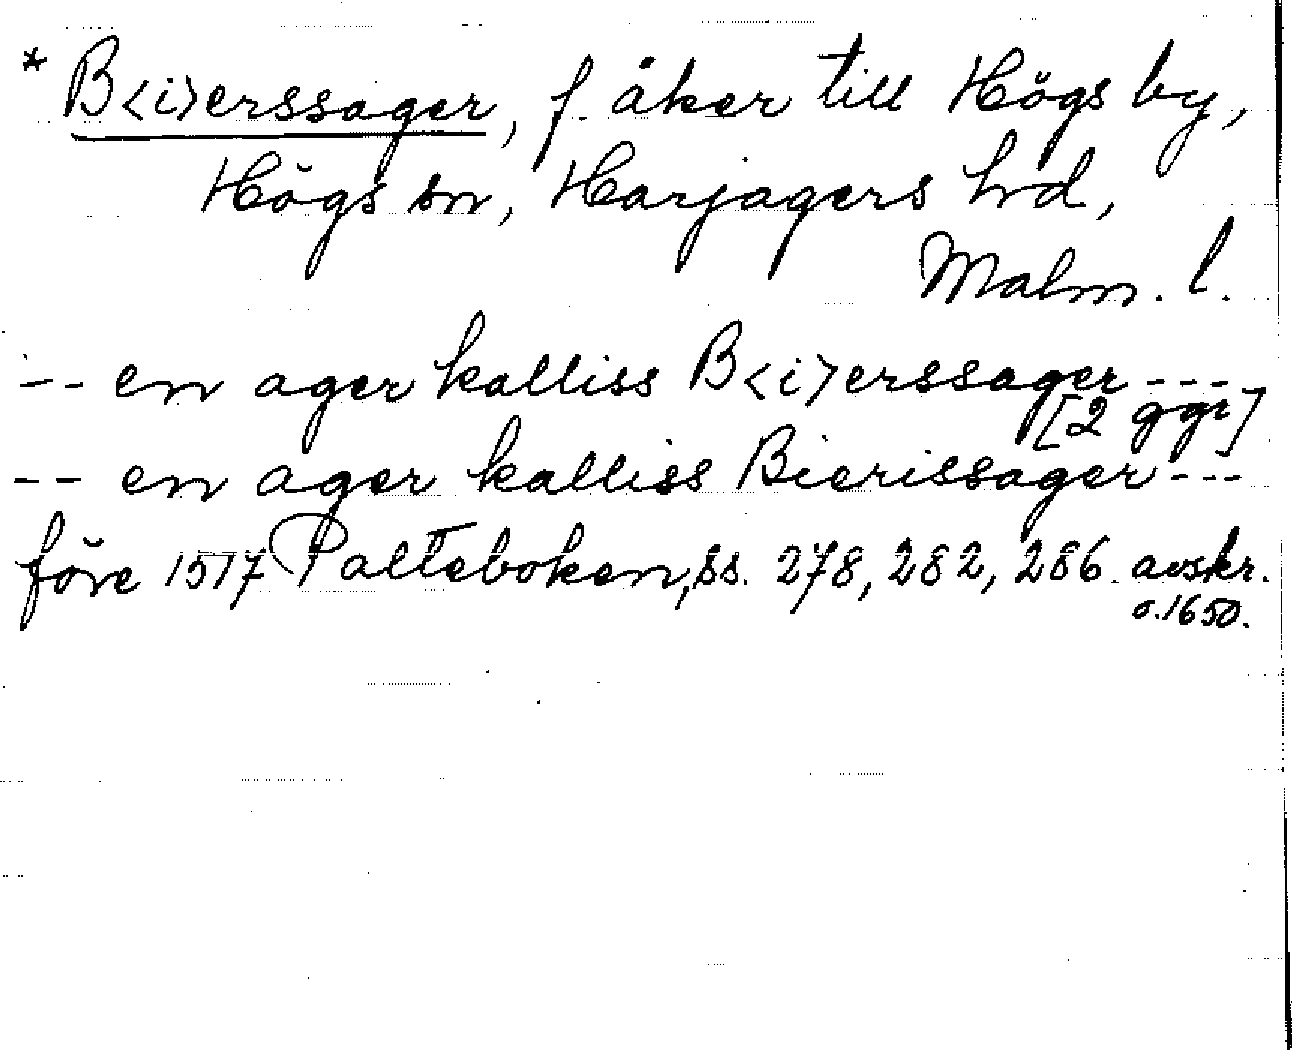 * B<i>erssager, f. åker till Högs by,
Högs sn, Harjagers hd,
Malm. l.
-- en ager kalliss B<i>erssager ---
[2 ggr]
-- en ager kalliss Bierissager ---
före 1517 Palteboken, ss. 278, 282, 286. avskr.
o. 1650.